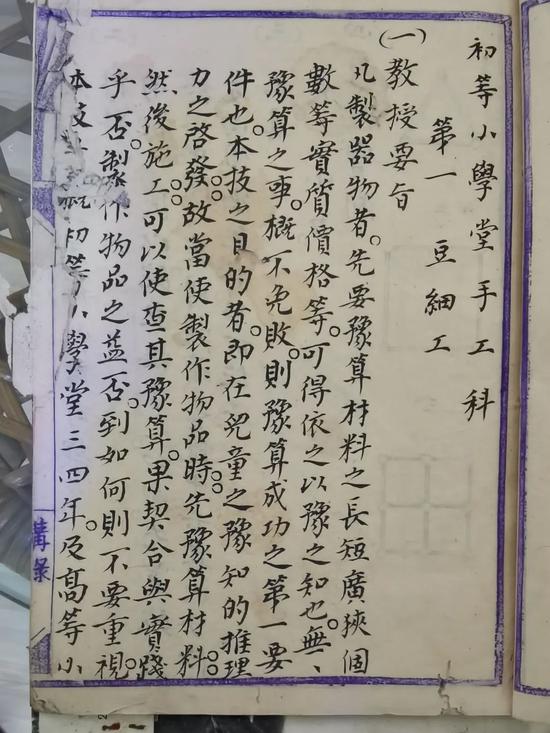 初等小學堂手工科
第一　豆細工
(一)教授要旨
凡製器物者。先要豫算材料之長短廣狹個
數等實質價格等。可得依之以豫之知也。無、
豫算之事。概不免敗。則豫算成功之第一要
件也。本技之目的者。即在兒童之豫知的推理
力之啓發。故當使製作物品時。先豫算材料。
然後施工。可以使查其豫算。果契合與實踐
乎否。製作物品之益否。到如何則不要重視。
本技 初等小學堂三四年。及高等小
講录